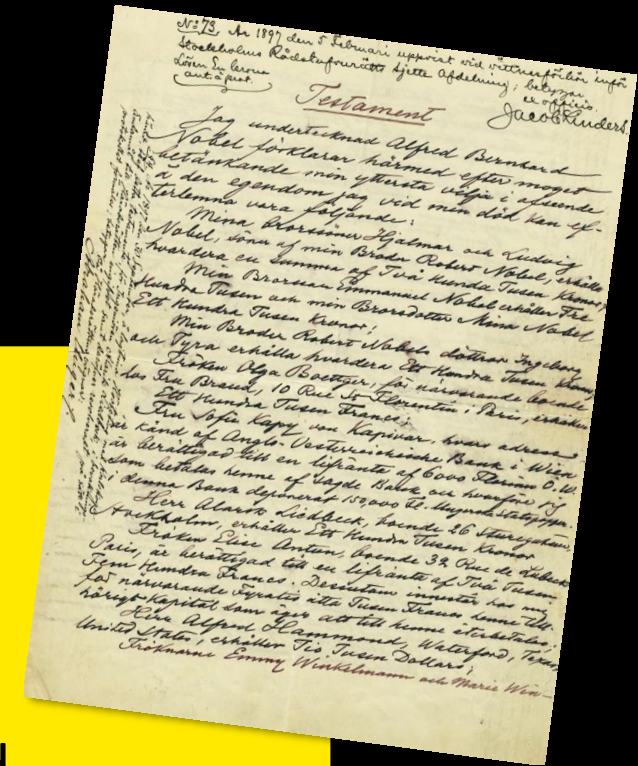 No 73. År 1897 den 5 Februari uppvist vid vittnesförhör inför
Stockholms Rådstufvurätts sjette afdelning; betygar
ex officio.
Jacob Linders.
Testament
Jag undertecknad Alfred Bernhard
Nobel förklarar härmed efter moget
betänkande min yttersta vilja i afseende
å den egendom jag vid min död kan ef-
terlemna vara följande:
Mina Brorsöner Hjalmar och Ludvig
Nobel, söner af min Broder Robert Nobel, erhålla
hvardera en summa af Två Hundra Tusen Kronor;
Min Brorson Emmanuel Nobel erhåller Tre
Hundra Tusen och min Brorsdotter Mina Nobel
Ett Hundra Tusen Kronor;
Min Broder Robert Nobels döttrar Ingeborg
och Tyra erhålla hvardera Ett Hundra Tusen Kronor;
Fröken Olga Boettger, för närvarande boende
hos Fru Brand, 10 Rue St Florentin i Paris, erhåller
Ett Hundra Tusen Francs;
Fru Sofie Kapy von Kapivar, hvars adress
är känd af Anglo-Oesterreichische Bank i Wien
är berättigad till en lifränta af 6000 Florins Ö.W.
som betalas henne af sagde Bank och hvarföre jag
i denna Bank deponerat 150,000 Fl. i Ungerska Statspapper.
Herr Alarik Liedbeck, boende 26 Sturegatan,
Stockholm, erhåller Ett Hundra Tusen Kronor
Fröken Elise Antun, boende 32 Rue de Lubeck
Paris, är berättigad till en lifränta af Två Tusen
Fem Hundra Francs. Desutom innestår hos mig
för närvarande Fyratio åtta Tusen Francs henne till-
hörigt Kapital som äger att till henne återbetalas;
Herr Alfred Hammond, Waterford, Texas,
United States, erhåller Tio Tusen Dollars;
Fröknarne Emmy Winkelmann och Marie Win-